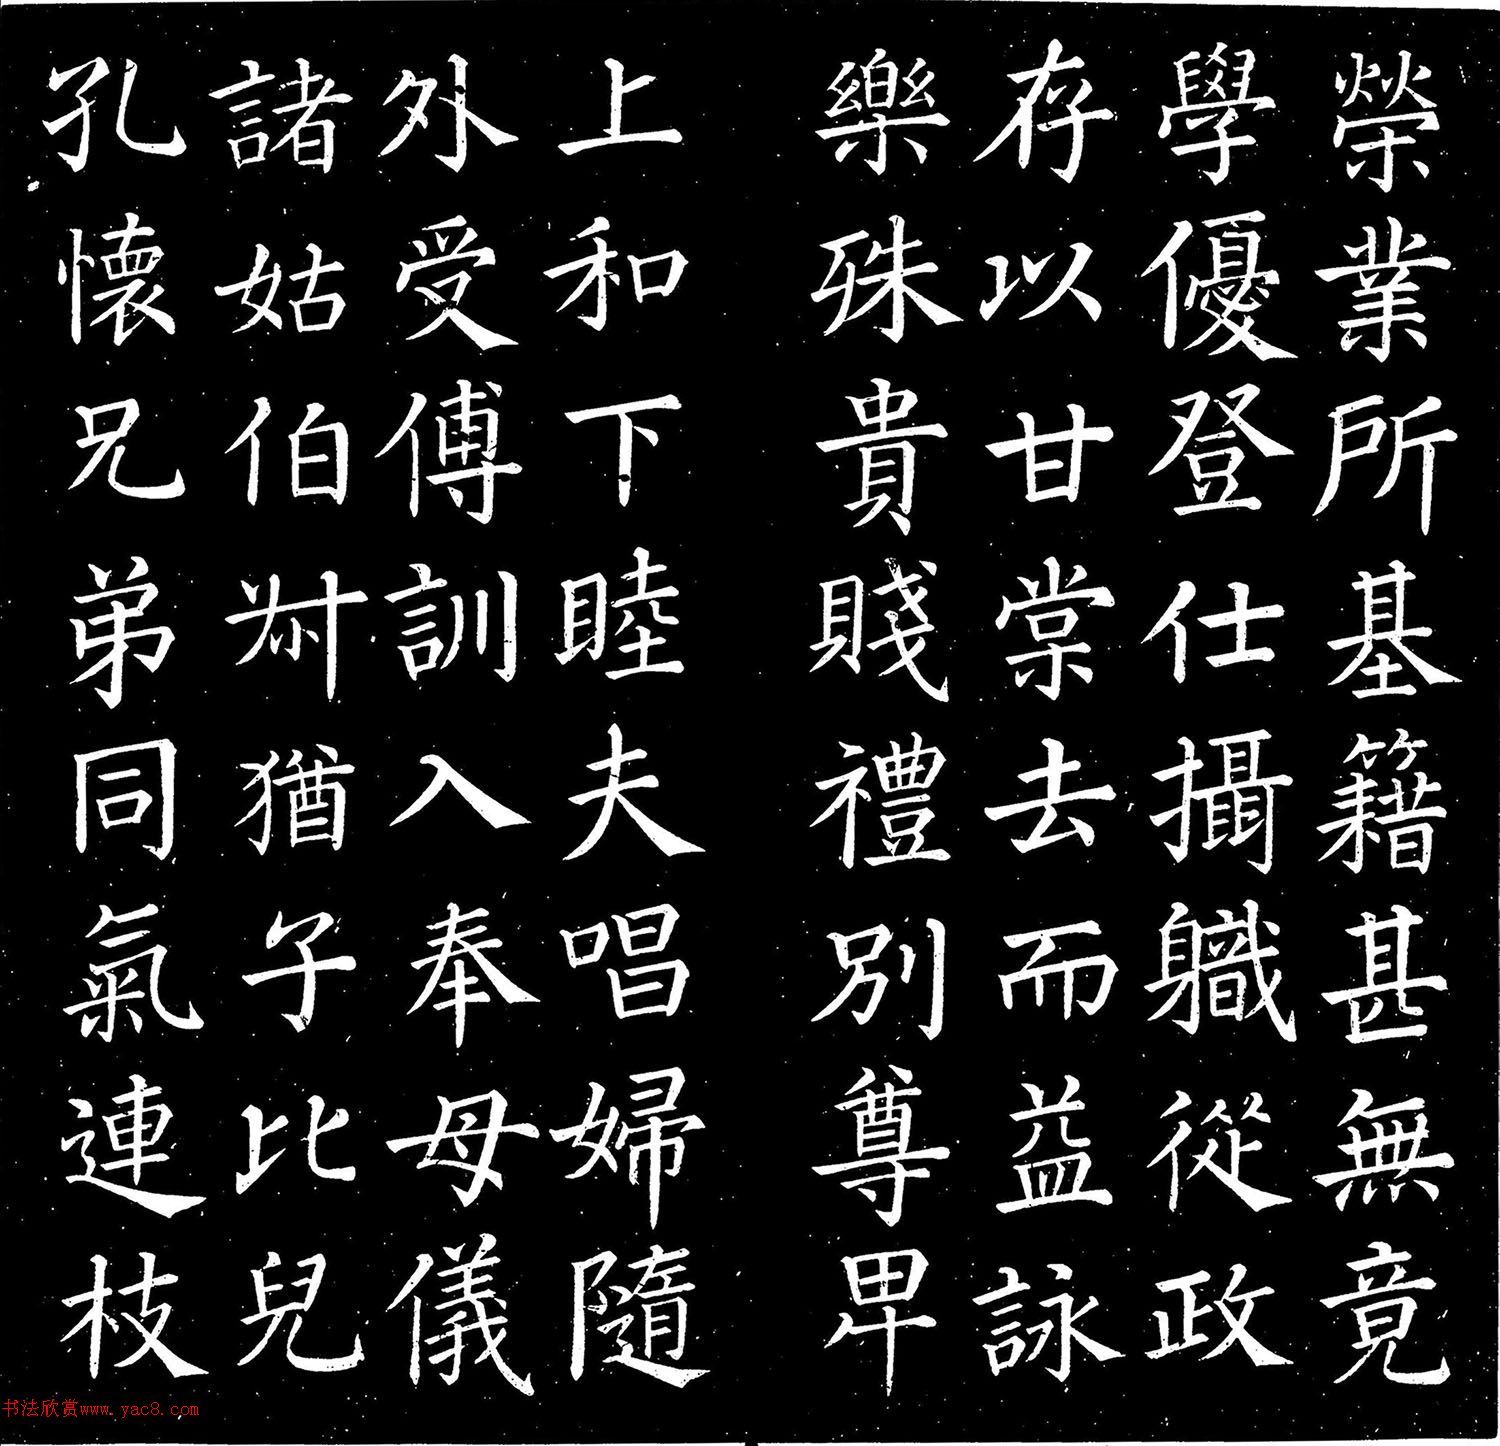 榮業所基籍甚無竟
學優登仕攝職從政
存以甘棠去而益詠
樂殊貴賤禮別尊卑
上和下睦夫唱婦隨
外受傅訓入奉母儀
諸姑伯叔猶子比兒
孔懷兄弟同氣連枝
书法欣赏www.yac8.com